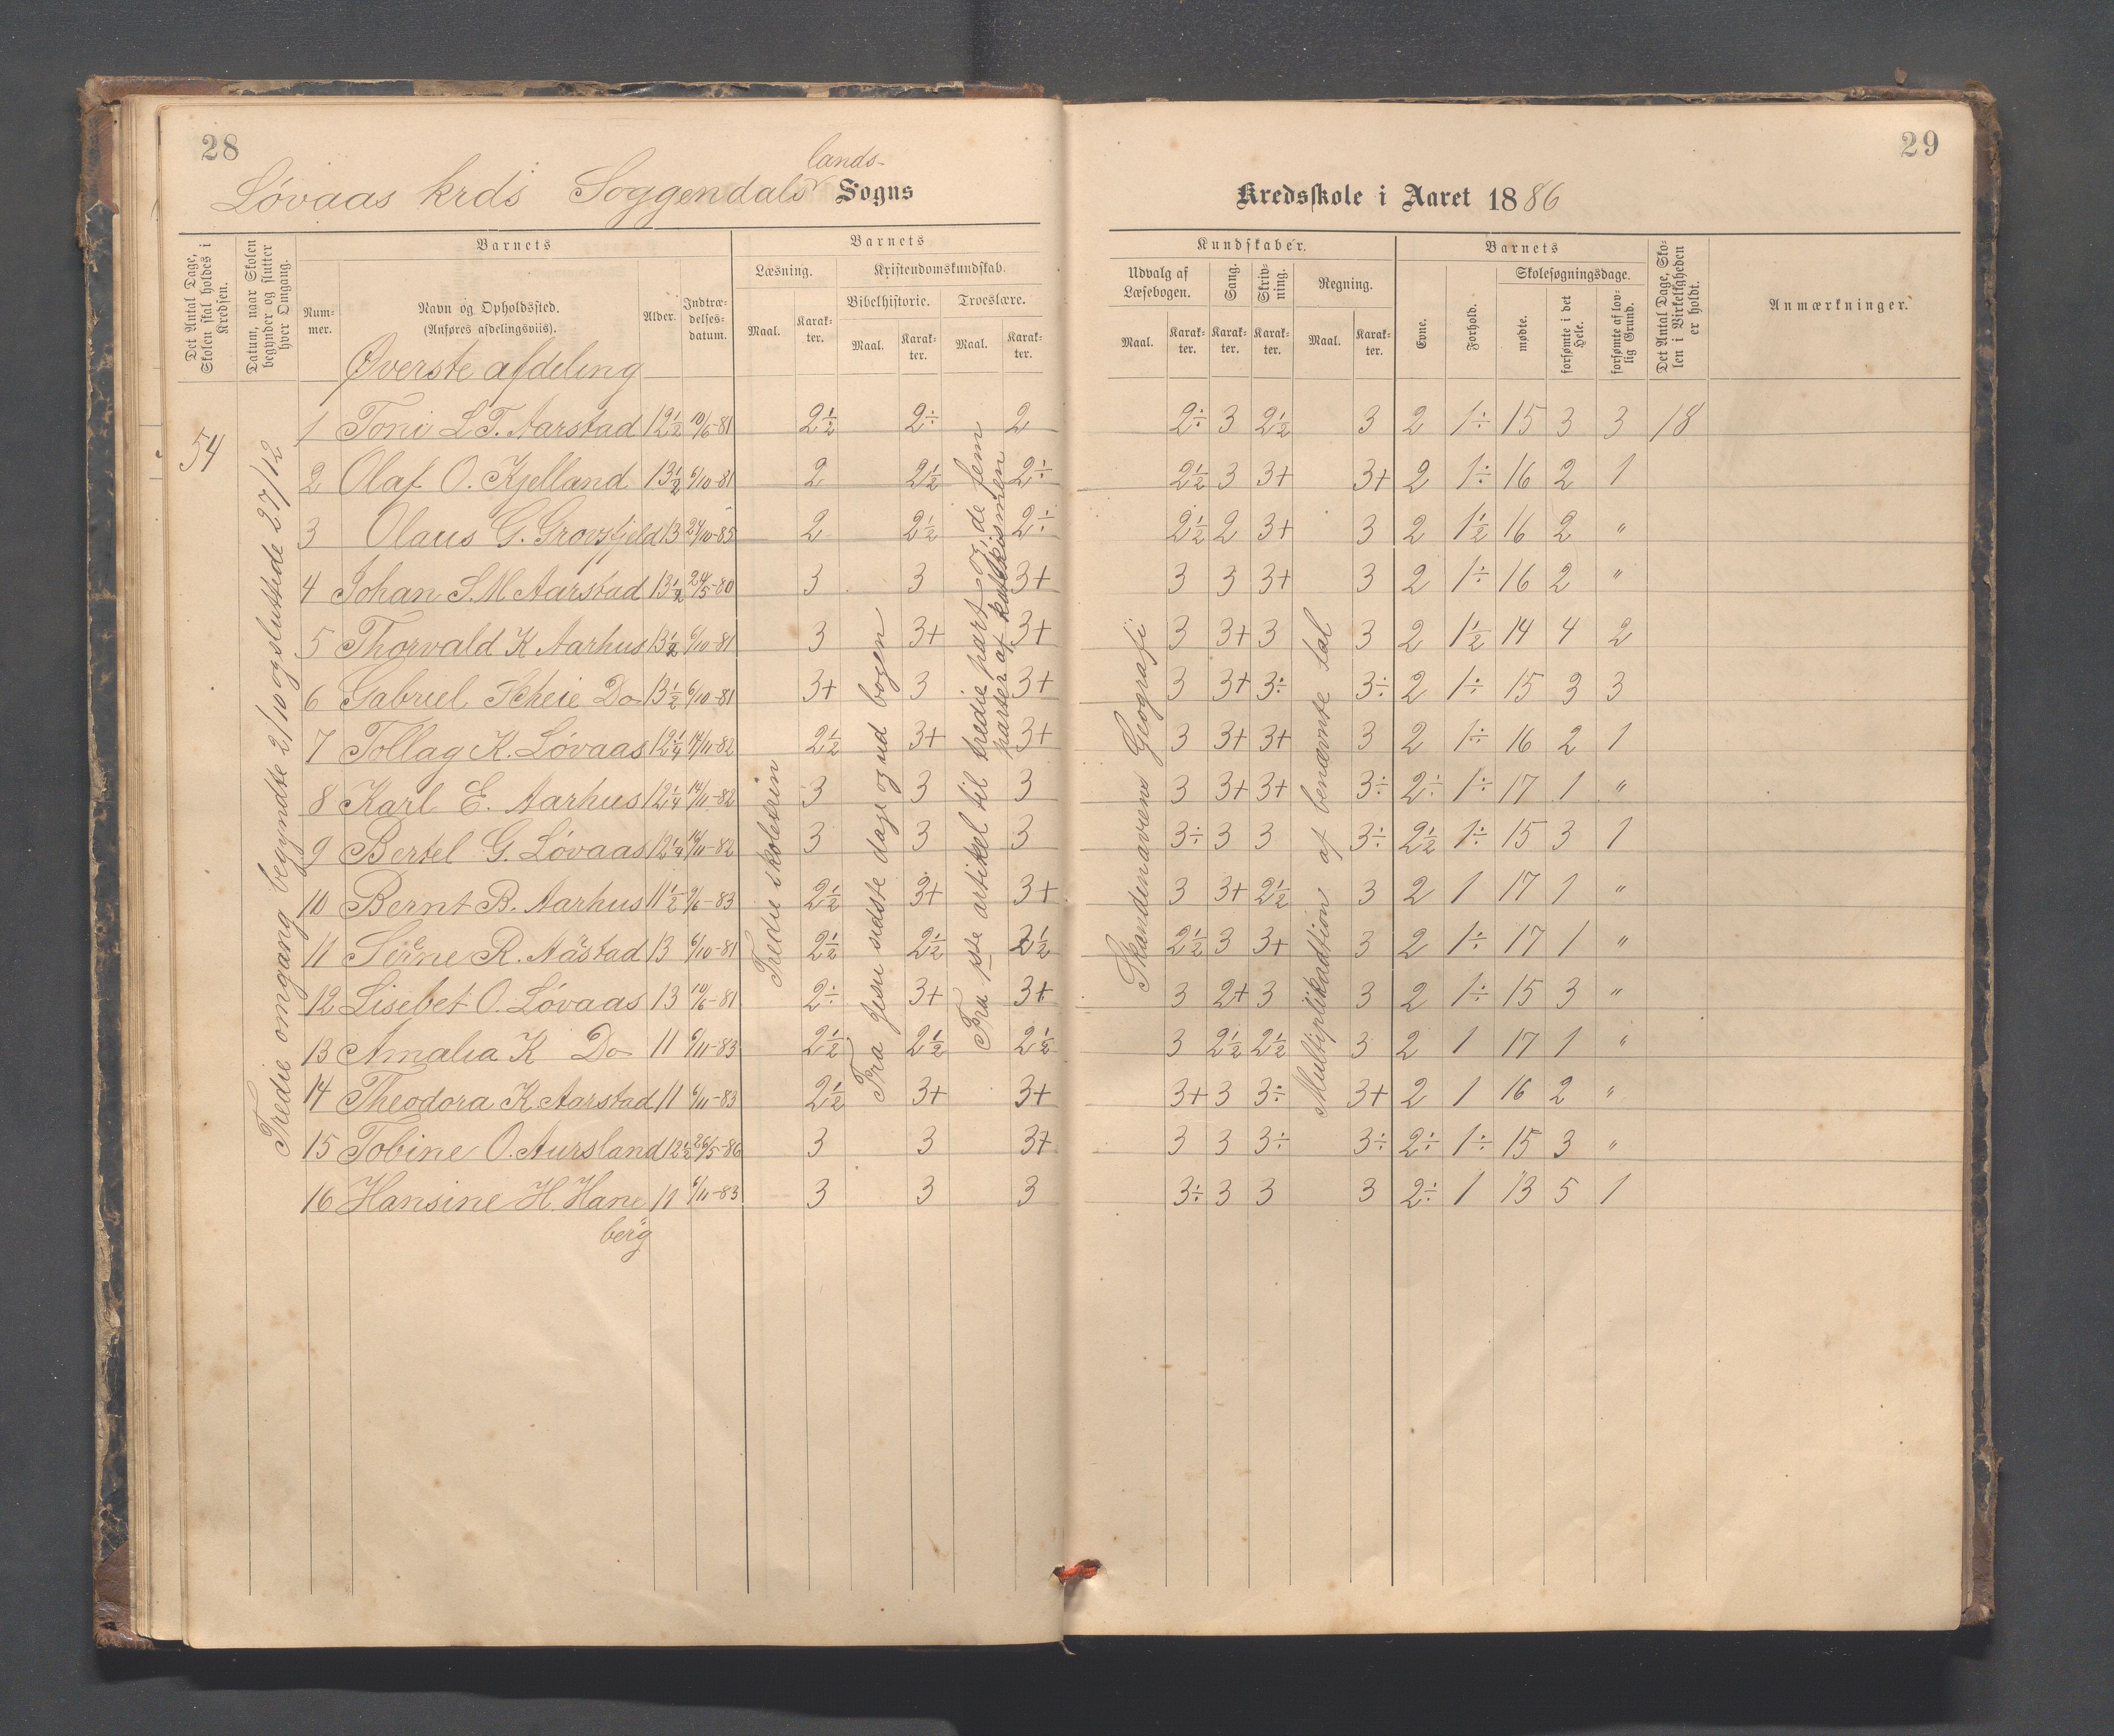 28
29
lands-
Løvaas krds Soggendals Sogns
Kredsskole i Aaret 1886
Det Antal Dage, Skolen skal holdes i Kredsen.
Datum, naar Skolen begynder og slutter hver Omgang.
Barnets
Nummer.
Navn og Opholdssted. (Anføres afdelingsviis).
Alder.
Indtrædelsesdatum.
Barnets
Læsning.
Maal.
Karakter.
Kristendomskundskab.
Bibelhistorie.
Maal.
Karakter.
Troeslære.
Maal.
Karakter.
Kundskaber.
Udvalg af Læsebogen.
Maal.
Karakter.
Sang.
Karakter.
Skrivning.
Karakter.
Regning.
Maal.
Karakter.
Barnets
Evne.
Forhold.
Skolesøgningsdage.
mødte.
forsømte i det Hele.
forsømte af lovlig Grund.
Det Antal Dage, Skolen i Virkeligheden er holdt.
Anmærkninger.
Øverste afdeling
54
Tredie omgang begyndte 2/10 og sluttede 27/12
Tredie skoletrin
Fra Jesu sidste dage og ud bogen
Fra 1ste artikel til tredie part og de fem parter af katekismen
Skandenaviens Geografi
Multiplikadtion af benævnte tal
1 Toni L T. Aarstad 12½ 10/6-81 2½ 2÷ 2 2÷ 3 2½ 3 2 1÷ 15 3 3 18
2 Olaf O. Kjelland 13½ 6/10-81 2 2½ 2÷ 2½ 3 3+ 3+ 2 1÷ 16 2 1
3 Olaus G. Grovsfjeld 13 27/10-85 2 2½ 2÷ 2½ 2 3+ 3 2 1½ 16 2 "
4 Johan S. M Aarstad 13½ 24/5-80 3 3 3+ 3 3 3+ 3 2 1÷ 16 2 "
5 Thorvald K Aarhus 13½ 6/10-81 3 3+ 3+ 3 3+ 3 3 2 1½ 14 4 2
6 Gabriel Scheie Do 13½ 6/10-81 3+ 3 3+ 3 3+ 3÷ 3÷ 2 1÷ 15 3 3
7 Tollag K. Løvaas 12¼ 14/11-82 2½ 3+ 3+ 3 3+ 3+ 3 2 1÷ 16 2 1
8 Karl E. Aarhus 12¼ 14/11-82 3 3 3 3 3+ 3+ 3÷ 2÷ 1÷ 17 1 "
9 Bertel G. Løvaas 12¼ 14/11-82 3 3 3 3÷ 3 3 3÷ 2½ 1÷ 15 3 1
10 Bernt B. Aarhus 11½ 9/6-83 2½ 3+ 3+ 3 3+ 2½ 3 2 1 17 1 "
11 Serne R. Aastad 13 6/10-81 2½ 2½ 2½ 2½ 3 3+ 3 2 1÷ 17 1 "
12 Lisebet O. Løvaas 13 10/6-81 2÷ 3+ 3+ 3 2+ 3 3 2 1÷ 15 3 "
13 Amalia K Do 11 6/11-83 2½ 2½ 2½ 3 2½ 2½ 3 2 1 17 1 "
14 Theodora K Aarstad 11 6/11-83 2½ 3+ 3+ 3+ 3 3÷ 3+ 2 1 16 2 "
15 Tobine O. Aursland 12½ 26/5-86 3 3 3+ 3 3 3÷ 3÷ 2÷ 1÷ 15 3 "
16 Hansine H. Hane 11 6/11-83 3 3 3 3÷ 3 3 3 2÷ 1 13 5 1
berg